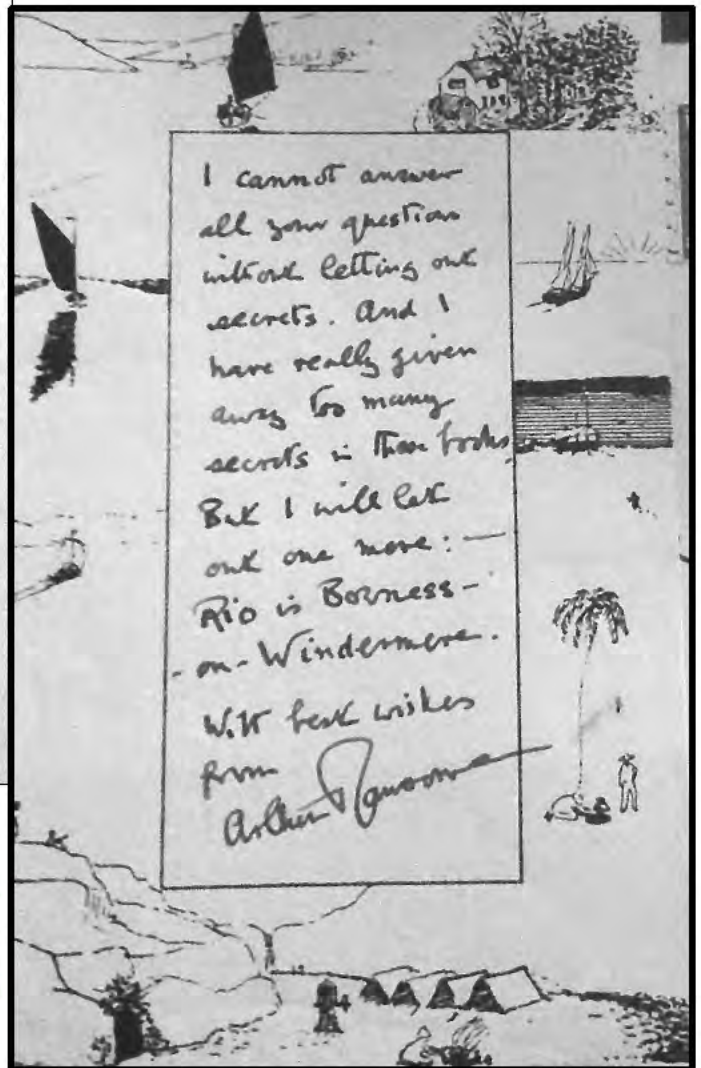 I cannot answer
all your questions
without letting out
secrets. And I
have really given
away too many
secrets in those books
But I will let
out one more: —
Rio is Bowness -
- on - Windermere.
With best wishes
from
Arthur Ransome